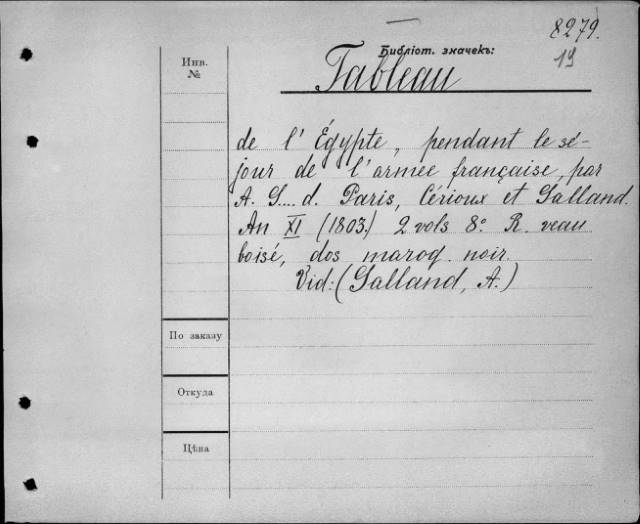 8279.
Библіот. значекъ:
19
Инв.
№
Tableau
de l'Égypte, pendant le sé-
jour de l'armée française, par
A. G....d. Paris, Cérioux et Galland.
An XI (1803.) 2 vols 8º R. veau
boisé, dos maroq. noir.
Vid: (Galland, A.)
По заказу
Откуда
Цѣна